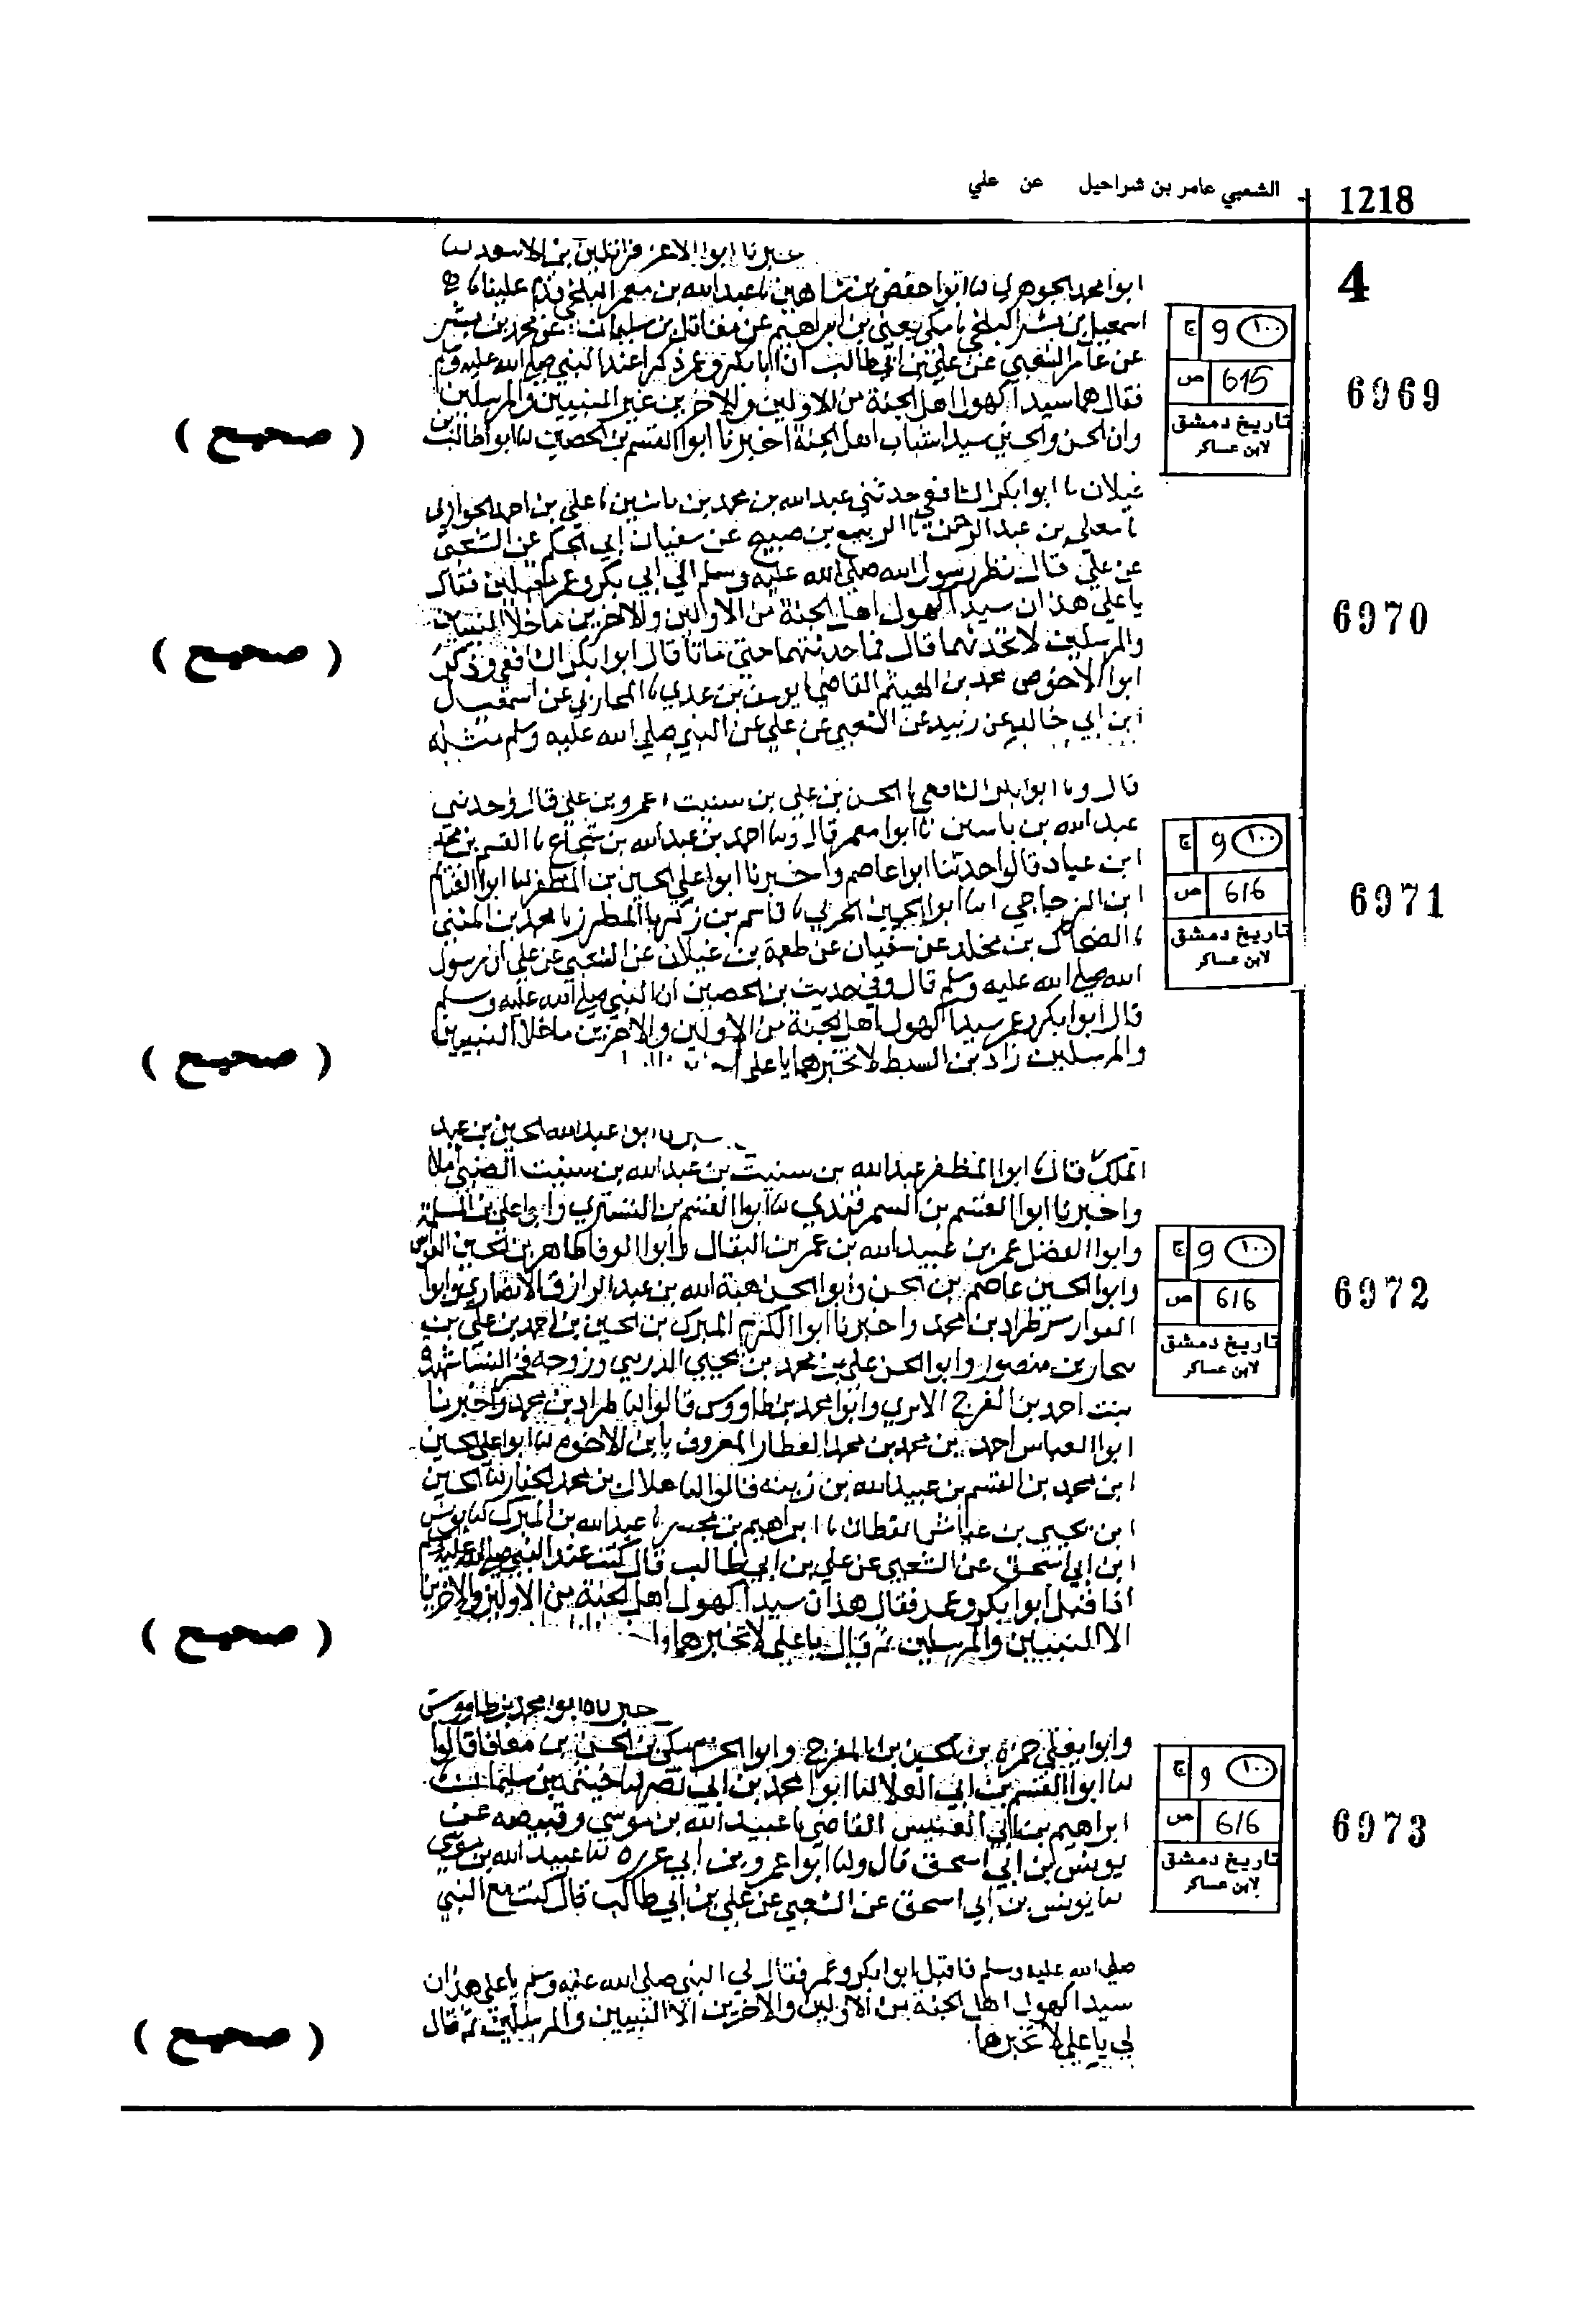 1218
الشعبي عامر بن شراحيل عن علي
4
خبرنا ابوا الاعز قراتكين بن الاسعد انا
ابوا محمد الجوهري انا ابوا حفص بن شاهين نا عبد الله بن معمر البلخي قدم علينا نا
اسمعيل بن بشر البلخي نا مكي يعني بن ابراهيم عن مقاتل بن سليمان عن محمد بن بشر
عن عامر الشعبي عن علي بن ابي طالب ان ابا بكر وعمر ذكرا عند النبي صلي الله عليه وسلم
فقال هما سيدا كهول اهل الجنة من الاولين والاخرين غير النبيين والمرسلين
وان الحسن والحسين سيدا شباب اهل الجنة اخبرنا ابوا القسم بن الحصين انا ابوا طالب بن
6969
١٠٠ و ج
615 ص
تاريخ دمشق
لابن عساكر
( صحيح )
غيلان نا ابوا بكر الشافعي حدثني عبد الله بن محمد بن ياسين نا علي بن احمد الجواربي
نا معلى بن عبد الرحمن نا الربيع بن صبيح عن سفيان ابي الحكم عن الشعبي
عن علي قال نظر رسول الله صلي الله عليه وسلم الي ابي بكر وعمر مقبلين فقال
يا علي هذان سيدا كهول اهل الجنة من الاولين والاخرين ما خلا النبيين
والمرسلين لا تحدثهما قال فما حدثتهما حتى ماتا قال ابوا بكر الشافعي وذكر
ابوا الاحوص محمد بن الهيثم القاضي نا يوسف بن عدي نا المحاربي عن اسمعيل
ابن ابي خالد عن زبيد عن الشعبي عن علي عن النبي صلي الله عليه وسلم مثله
6970
( صحيح )
قال ونا ابوا بكر الشافعي نا الحسن بن علي بن شبيب نا عمرو بن علي قال وحدثني
عبد الله بن ياسين نا ابوا معمر قال ونا احمد بن عبد الله بن شجاع نا القسم بن محمد
ابن عباد قالوا حدثنا ابوا عاصم واخبرنا ابوا علي الحسين بن المظفر انا ابوا الغنائم
ابن الزجاجي انا ابوا الحسين الحربي نا قاسم بن زكريا المطرز نا محمد بن المثنى
نا الضحاك بن مخلد عن سفيان عن طعمة بن غيلان عن الشعبي عن علي ان رسول
الله صلي الله عليه وسلم قال وفي حديث بن الحصين ان النبي صلي الله عليه وسلم
قال ابوا بكر وعمر سيدا كهول اهل الجنة من الاولين والاخرين ما خلا النبيين
والمرسلين زاد بن السبط لا تخبرهما يا علي
6971
١٠٠ و ج
616 ص
تاريخ دمشق
لابن عساكر
( صحيح )
ابوا عبد الله الحسين بن عبد
الملك قال نا ابوا المظفر عبد الله بن شبيب بن عبد الله بن شبيب الضبي املا
واخبرنا ابوا القسم بن السمرقندي انا ابوا القسم بن البسري وابوا علي بن المسلمة
وابوا الفضل عمر بن عبيد الله بن عمر بن البقال وابوا الوفا طاهر بن الحسين القواس
وابوا الحسين عاصم بن الحسن وابوا الحسن هبة الله بن عبد الرازق الانصاري وابوا
الفوارس طراد بن محمد واخبرنا ابوا الكرم المبرك بن الحسين بن احمد بن علي بن
بن منصور وابوا الحسن علي بن محمد بن يحيي الدريبي وزوجه فخر النسا شهده
بنت احمد بن الفرج الابري وابوا محمد بن طاووس قالوا انا طراد بن محمد واخبرنا
ابوا العباس احمد بن محمد بن محمد العطار المعروف بابن الاخوه انا ابوا علي الحسين
ابن محمد بن القسم بن عبيد الله بن زينه قالوا انا هلال بن محمد الحفار انا الحسين
ابن يحيي بن عياش القطان نا ابراهيم بن مجشر نا عبد الله بن المبرك انا يونس
ابن ابي اسحق عن الشعبي عن علي بن ابي طالب قال كنت عند النبي صلي الله عليه وسلم
اذ اقبل ابوا بكر وعمر فقال هذان سيدا كهول اهل الجنة من الاولين والاخرين
الا النبيين والمرسلين ثم قال يا علي لا تخبرهما
6972
١٠٠ و ج
616 ص
تاريخ دمشق
لابن عساكر
( صحيح )
خبرناه ابوا محمد بن طاووس
وابوا يعلي حمزة بن الحسن بن المفرج وابوا الحرم مكي بن الحسن بن معافا قالوا
انا ابوا القسم بن ابي العلا انا ابوا محمد بن ابي نصر انا خيثمة بن سليمان نا
ابراهيم بن ابي العنبس القاضي نا عبيد الله بن موسي وقبيصه عن
يونس بن ابي اسحق قال وانا ابوا عمرو بن ابي غرزه انا عبيد الله بن موسي
نا يونس بن ابي اسحق عن الشعبي عن علي بن ابي طالب قال كنت مع النبي
صلي الله عليه وسلم فاقبل ابوا بكر وعمر فقال لي النبي صلي الله عليه وسلم يا علي هذان
سيدا كهول اهل الجنة من الاولين والاخرين الا النبيين والمرسلين ثم قال
لي يا علي لا تخبرهما
6973
١٠٠ و ج
616 ص
تاريخ دمشق
لابن عساكر
( صحيح )